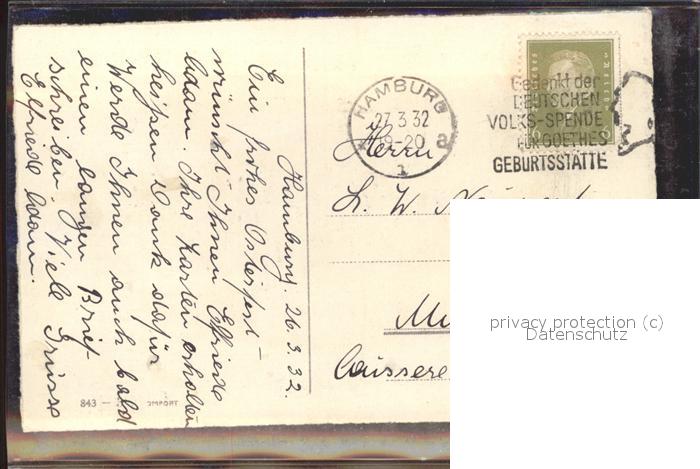 Hamburg 26.3.32.
Ein frohes Osterfest
wünscht Ihnen Elfriede
Adam. Ihre Karten erhalten
heißen Dank dafür
Werde Ihnen auch bald
einen langen Brief
schreiben. Viele Grüsse
Elfriede Adam.
843 — IMPORT
HAMBURG
27.3.32
-20
1 a
Gedenkt der
DEUTSCHEN
VOLKS-SPENDE
FÜR GOETHES
GEBURTSSTÄTTE
Herrn
L. W.
privacy protection (c)
Datenschutz